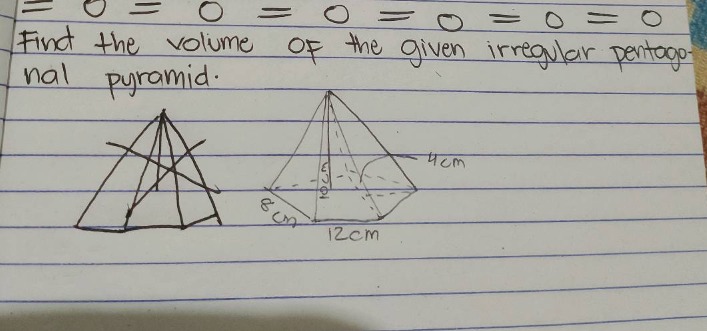 = 0 = 0 = 0 = 0 = 0 = 0
Find the volume of the given irregular pentago-
nal pyramid.
4cm
10cm
8cm
12cm